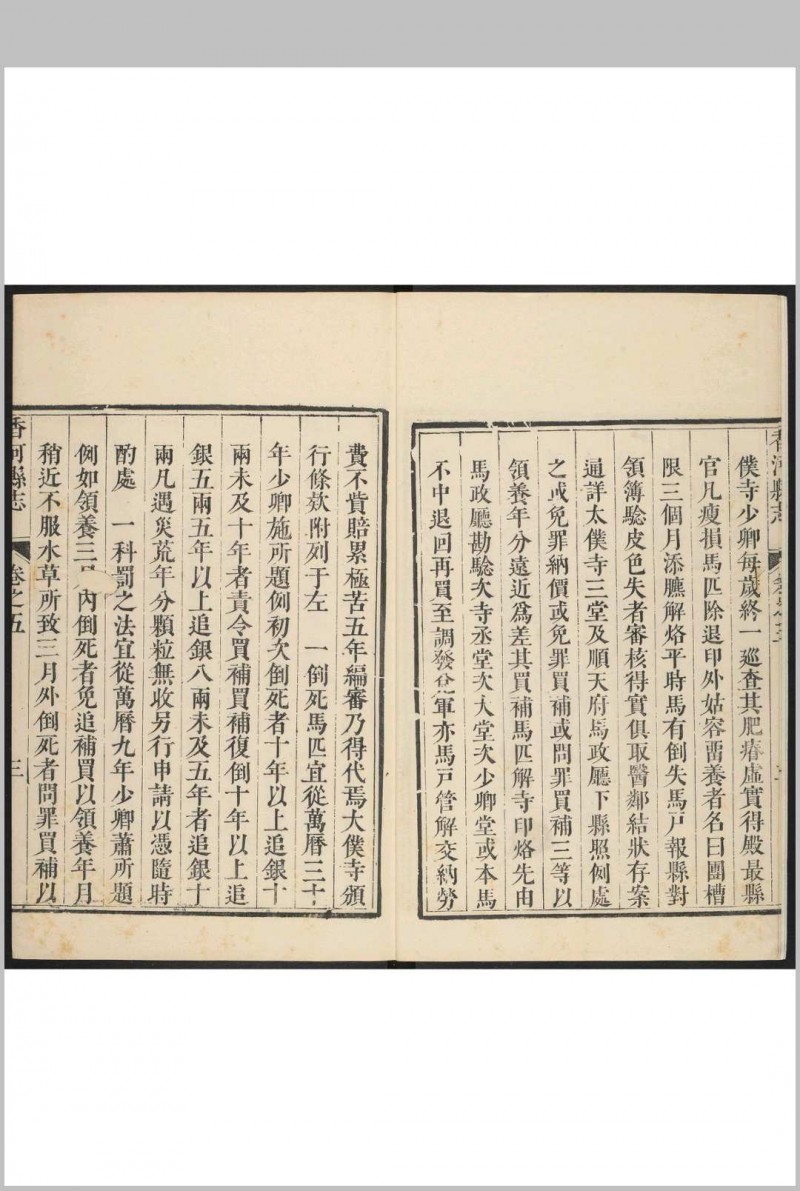 香河縣志
僕寺少卿每歲終一巡查其肥瘠虛實得殿最縣
官凡瘦損馬匹除退印外姑容畱養者名曰圈槽
限三個月添臕解烙平時馬有倒失馬戸報縣對
領簿騐皮色失者審核得實俱取醫鄰結狀存案
通詳太僕寺三堂及順天府馬政廳下縣照例處
之或免罪納價或免罪買補或問罪買補三等以
領養年分遠近爲差其買補馬匹解寺印烙先由
馬政廳勘騐次寺丞堂次大堂次少卿堂或本馬
不中退回再買至調發兌軍亦馬戸管解交納勞
費不貲賠累極苦五年編審乃得代焉大僕寺頒
行條欵附列于左　一倒死馬匹宜從萬曆三十
年少卿施所題例初次倒死者十年以上追銀十
兩未及十年者責令買補買補復倒十年以上追
銀五兩五年以上追銀八兩未及五年者追銀十
兩凡遇災荒年分顆粒無收另行申請以憑隨時
酌處　一科罰之法宜從萬曆九年少卿蕭所題
例如領養三月內倒死者免追補買以領養年月
稍近不服水草所致三月外倒死者問罪買補以
香河縣志　卷之五　三